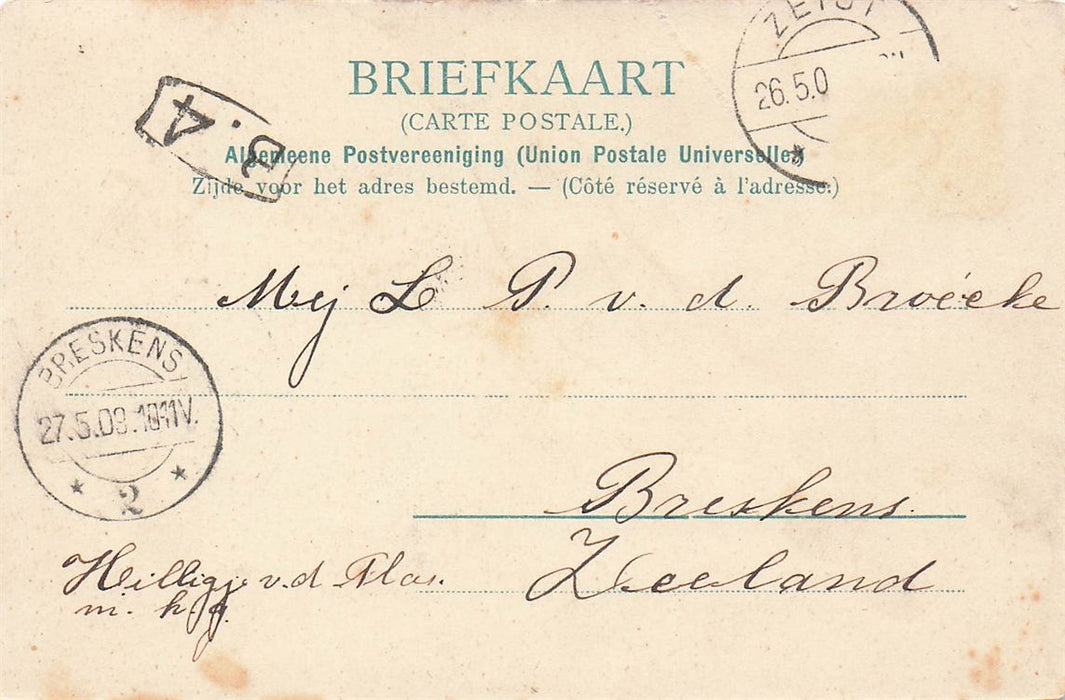 BRIEFKAART
(CARTE POSTALE.)
Algemeene Postvereeniging (Union Postale Universelle)
Zijde voor het adres bestemd. — (Côté réservé à l'adresse.)
ZEIST
26.5.0
B.4
Mej L P. v. d. Broécke
BRESKENS
27.5.03.1011V.
2
Breskens.
Zeeland
Heilligje v.d Plas.
m. h. g.